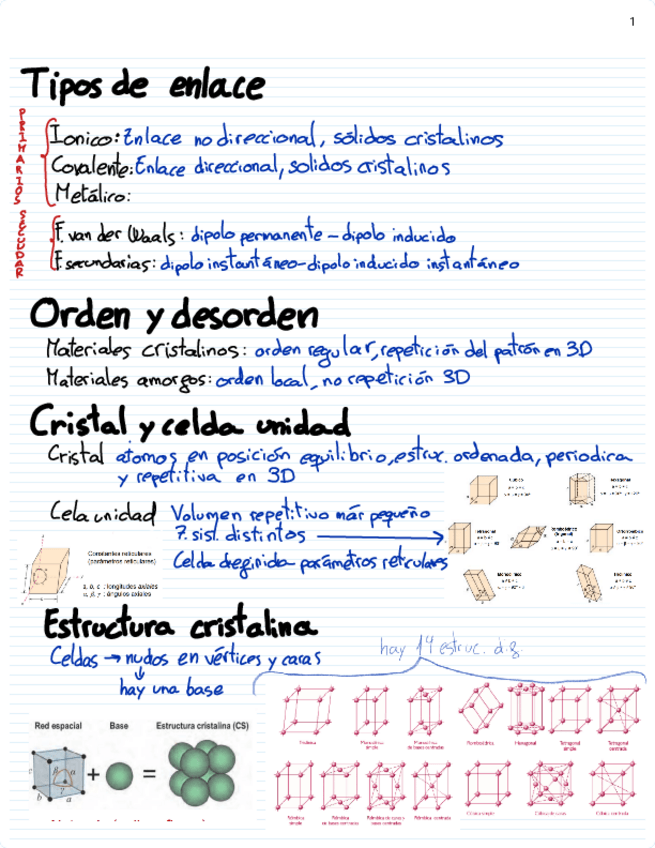 1
Tipos de enlace
PRIMARIOS
Ionico: Enlace no direccional, sólidos cristalinos
Covalente: Enlace direccional, solidos cristalinos
Metálico:
SECUDAR
F. van der Waals: dipolo permanente - dipolo inducido
F. secundarias: dipolo instantáneo-dipolo inducido instantáneo
Orden y desorden
Materiales cristalinos: orden regular, repetición del patrón en 3D
Materiales amorfos: orden local, no repetición 3D
Cristal y celda unidad
Cristal átomos en posición equilibrio, estruc. ordenada, periodica
y repetitiva en 3D
Cela unidad Volumen repetitivo más pequeño
7 sist. distintos
Celda definida parámetros reticulares
Constantes reticulares
(parámetros reticulares)
a, b, c : longitudes axiales
α, β, γ : ángulos axiales
Estructura cristalina
Celdas → nudos en vértices y caras
hay una base
hay 14 estruc. d.f.
Red espacial Base Estructura cristalina (CS)
c β α γ b a
+ =
Triclínica
Monoclínica simple
Monoclínica de bases centradas
Romboédrica
Hexagonal
Tetragonal simple
Tetragonal centrada